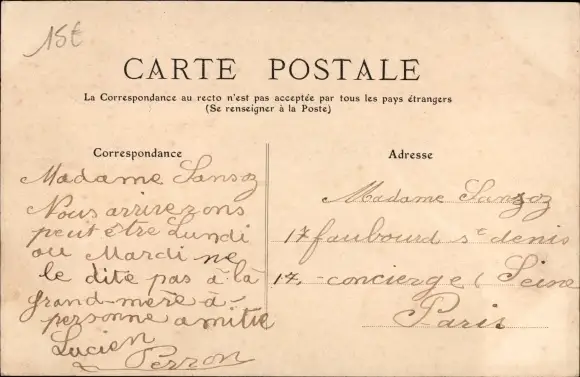 15€
CARTE POSTALE
La Correspondance au recto n'est pas acceptée par tous les pays étrangers
(Se renseigner à la Poste)
Correspondance
Madame Sansoz
Nous arriverons
peut être Lundi
ou Mardi ne
le dite pas à là
grand-mère à-
personne amitie
Lucien
Perron
Adresse
Madame Sansoz
17 faubourd st denis
17,-concierge (Seine
Paris